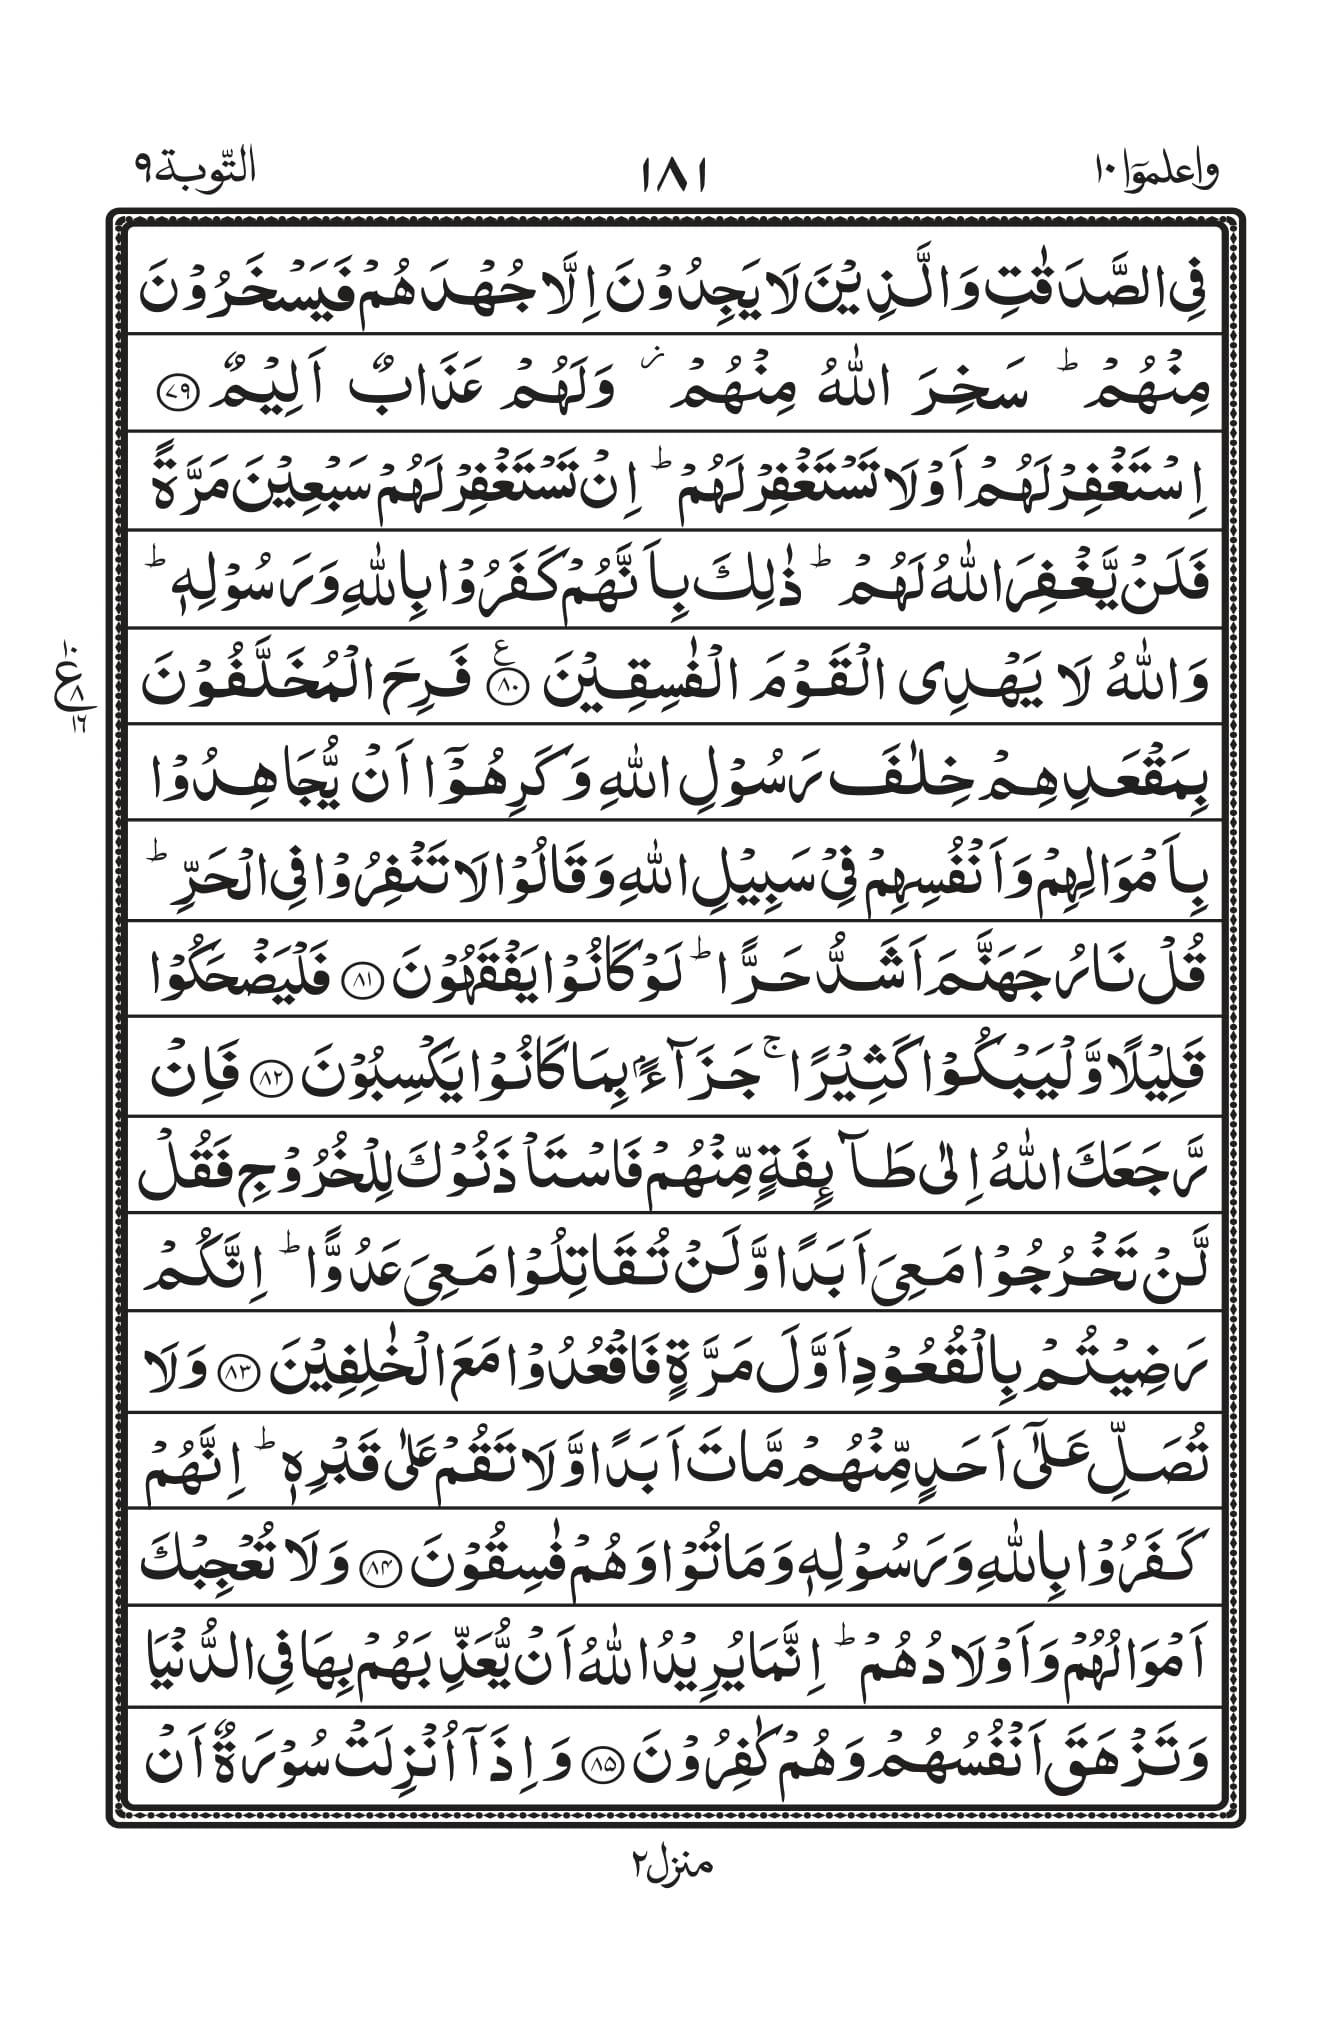 واعلموٓا ١٠
١٨١
التّوبة ٩
فِى الصَّدَقٰتِ وَالَّذِيْنَ لَا يَجِدُوْنَ اِلَّا جُهْدَهُمْ فَيَسْخَرُوْنَ
مِنْهُمْ ؕ سَخِرَ اللّٰهُ مِنْهُمْ ؗ وَلَهُمْ عَذَابٌ اَلِيْمٌ ﴿۷۹﴾
اِسْتَغْفِرْ لَهُمْ اَوْ لَا تَسْتَغْفِرْ لَهُمْ ؕ اِنْ تَسْتَغْفِرْ لَهُمْ سَبْعِيْنَ مَرَّةً
فَلَنْ يَّغْفِرَ اللّٰهُ لَهُمْ ؕ ذٰلِكَ بِاَنَّهُمْ كَفَرُوْا بِاللّٰهِ وَرَسُوْلِهٖ ؕ
وَاللّٰهُ لَا يَهْدِى الْقَوْمَ الْفٰسِقِيْنَ ﴿۸۰﴾ ع فَرِحَ الْمُخَلَّفُوْنَ
ع ١٠ ٨ ١٦
بِمَقْعَدِهِمْ خِلٰفَ رَسُوْلِ اللّٰهِ وَكَرِهُوْۤا اَنْ يُّجَاهِدُوْا
بِاَمْوَالِهِمْ وَاَنْفُسِهِمْ فِىْ سَبِيْلِ اللّٰهِ وَقَالُوْا لَا تَنْفِرُوْا فِى الْحَرِّ ؕ
قُلْ نَارُ جَهَنَّمَ اَشَدُّ حَرًّا ؕ لَوْ كَانُوْا يَفْقَهُوْنَ ﴿۸۱﴾ فَلْيَضْحَكُوْا
قَلِيْلًا وَّلْيَبْكُوْا كَثِيْرًا ۚ جَزَآءًۢ بِمَا كَانُوْا يَكْسِبُوْنَ ﴿۸۲﴾ فَاِنْ
رَّجَعَكَ اللّٰهُ اِلٰى طَآئِفَةٍ مِّنْهُمْ فَاسْتَاْذَنُوْكَ لِلْخُرُوْجِ فَقُلْ
لَّنْ تَخْرُجُوْا مَعِىَ اَبَدًا وَّلَنْ تُقَاتِلُوْا مَعِىَ عَدُوًّا ؕ اِنَّكُمْ
رَضِيْتُمْ بِالْقُعُوْدِ اَوَّلَ مَرَّةٍ فَاقْعُدُوْا مَعَ الْخٰلِفِيْنَ ﴿۸۳﴾ وَلَا
تُصَلِّ عَلٰٓى اَحَدٍ مِّنْهُمْ مَّاتَ اَبَدًا وَّلَا تَقُمْ عَلٰى قَبْرِهٖ ؕ اِنَّهُمْ
كَفَرُوْا بِاللّٰهِ وَرَسُوْلِهٖ وَمَاتُوْا وَهُمْ فٰسِقُوْنَ ﴿۸۴﴾ وَلَا تُعْجِبْكَ
اَمْوَالُهُمْ وَاَوْلَادُهُمْ ؕ اِنَّمَا يُرِيْدُ اللّٰهُ اَنْ يُّعَذِّبَهُمْ بِهَا فِى الدُّنْيَا
وَتَزْهَقَ اَنْفُسُهُمْ وَهُمْ كٰفِرُوْنَ ﴿۸۵﴾ وَاِذَاۤ اُنْزِلَتْ سُوْرَةٌ اَنْ
منزل ٢